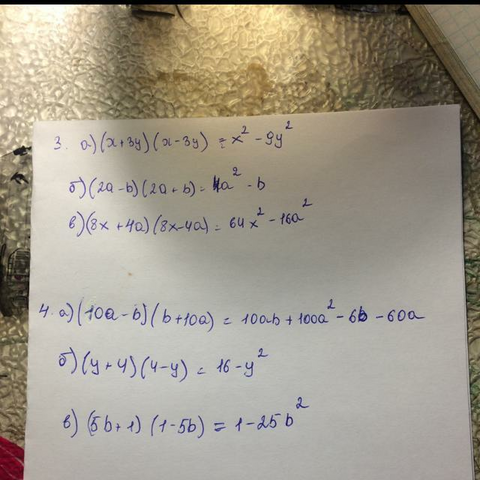 3. а) (x+3y)(x-3y) = x² - 9y²
б) (2a-b)(2a+b) = 4a² - b
в) (8x+4a)(8x-4a) = 64x² - 16a²
4. а) (10a-b)(b+10a) = 10ab + 100a² - 6b - 60a
б) (y+4)(4-y) = 16 - y²
в) (5b+1)(1-5b) = 1 - 25b²